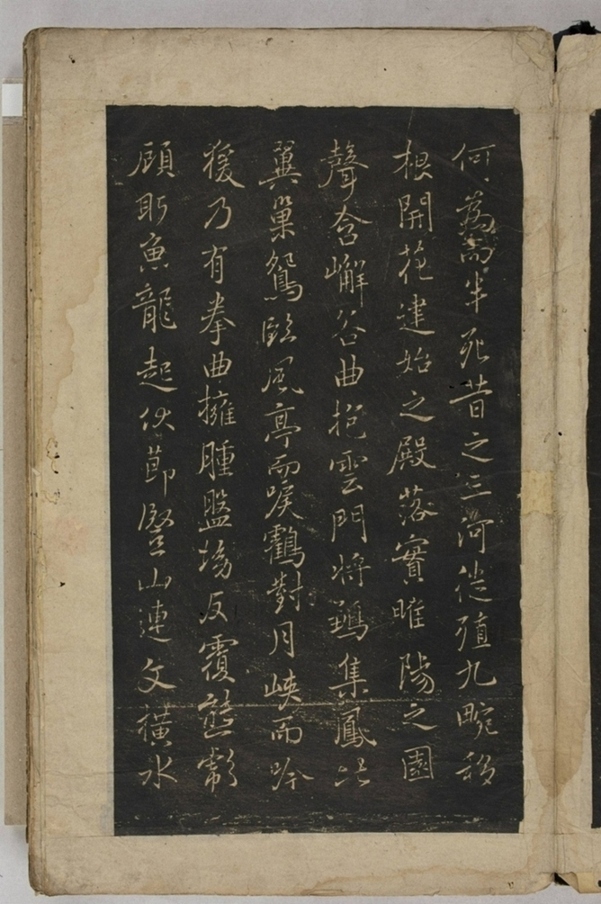 何為而半死昔之三河徙殖九畹移
根開花建始之殿落實睢陽之園
聲含嶰谷曲抱雲門將鶵集鳳比
翼巢鴛臨風亭而唳鶴對月峽而吟
猨乃有拳曲擁腫盤坳反覆熊彪
顧盼魚龍起伏節豎山連文橫水